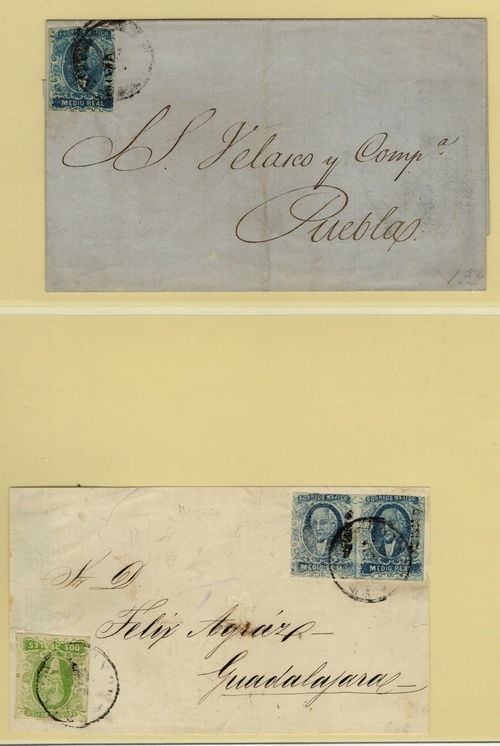 CORREOS MEJICO
MEDIO REAL
S. S. Velasco y Compª
Puebla.
1.50
CORREOS MEJICO CORREOS MEJICO
MEDIO REAL MEDIO REAL
Sr D
Felix Agráz
Guadalajara
DOS REALES